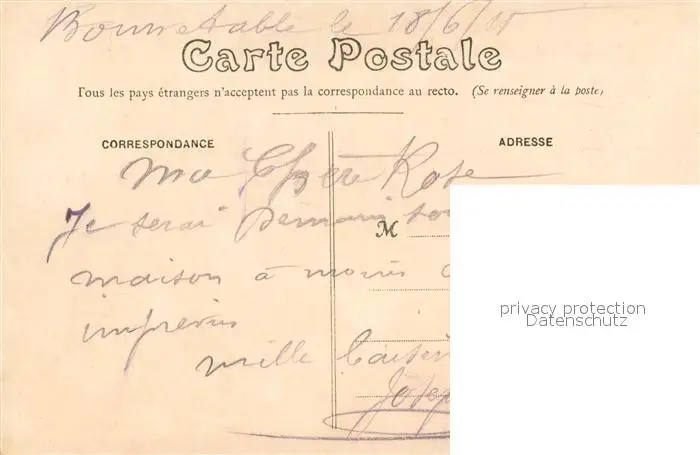 Bonnétable le 18/6/11
Carte Postale
Tous les pays étrangers n'acceptent pas la correspondance au recto. (Se renseigner à la poste)
CORRESPONDANCE
ADRESSE
Ma Chère Rose
Je serai Demain
M
maison à moins
imprévu
privacy protection
Datenschutz
mille baisers
Josep